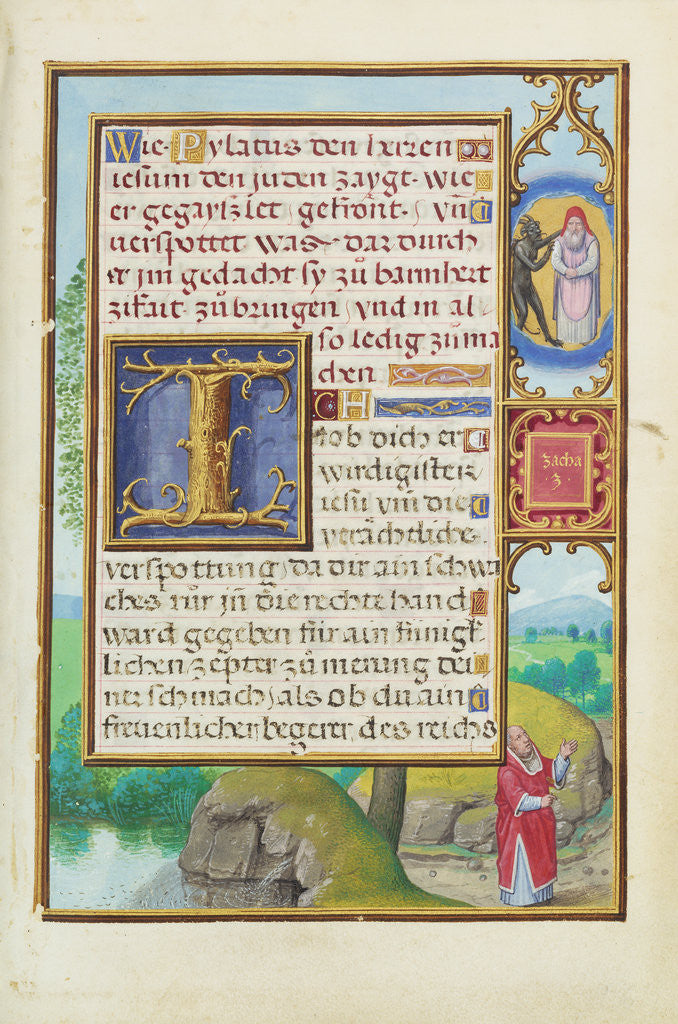 Wie Pylatus den herren
iesum den juden zaygt. wie
er gegayslet gekront. vn̄
verspottet was dar durch
er jm gedacht sy zů barmhert
zikait. zů bringen vnd in al
so ledig zůma
chen
ICH
lob dich er
wirdigister
iesu vm̄ die
verachtliche
verspottung, da dir ain schwa
ches růr jn die rechte hand
ward gegeben für ain künigk
lichen zepter zů merung dei
ner schmach, als ob du ain
freuenlicher begerer des reichs
zacha
3